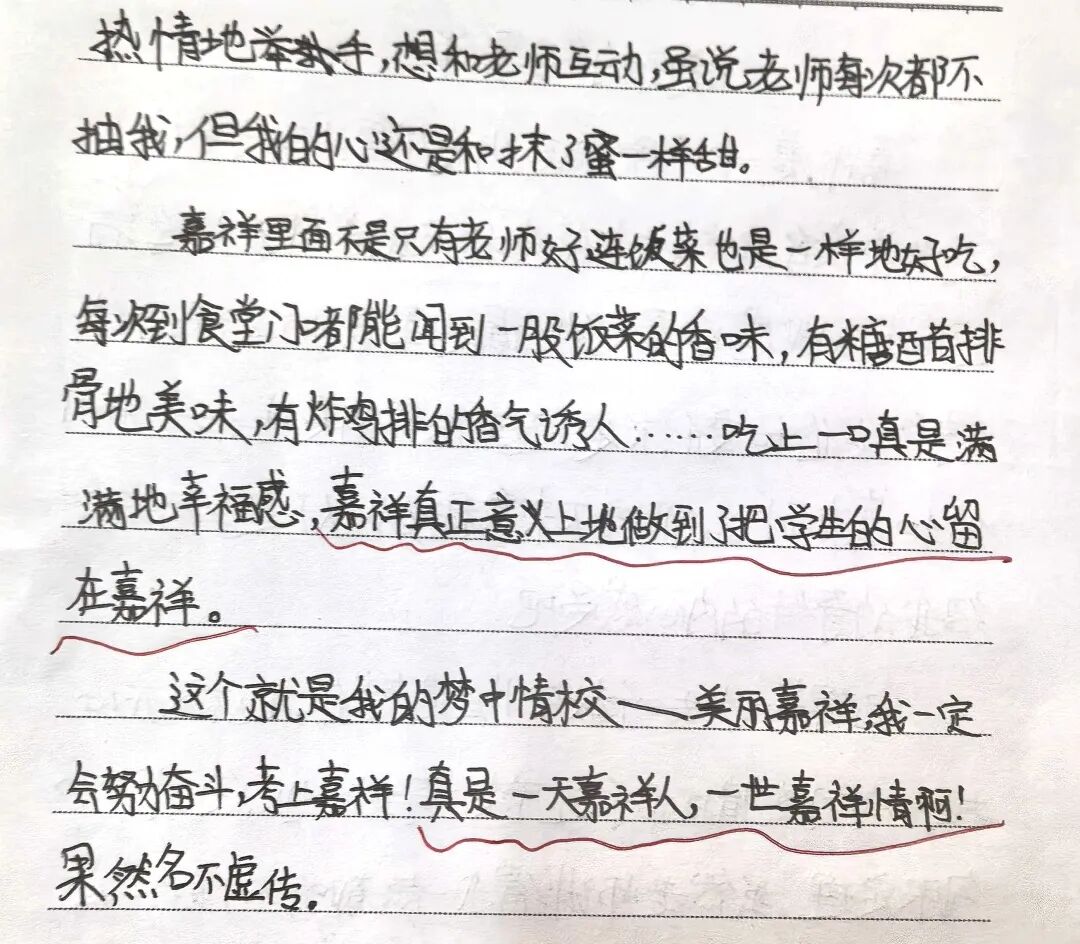 热情地举手，想和老师互动，虽说老师每次都不
抽我，但我的心还是和抹了蜜一样甜。
嘉祥里面不是只有老师好，连饭菜也是一样地好吃，
每次到食堂门口都能闻到一股饭菜的香味，有糖醋排
骨地美味，有炸鸡排的香气诱人……吃上一口真是满
满地幸福感，嘉祥真正意义上地做到了把学生的心留
在嘉祥。
这个就是我的梦中情校——美丽嘉祥，我一定
会努力奋斗，考上嘉祥！真是一天嘉祥人，一世嘉祥情啊！
果然名不虚传。